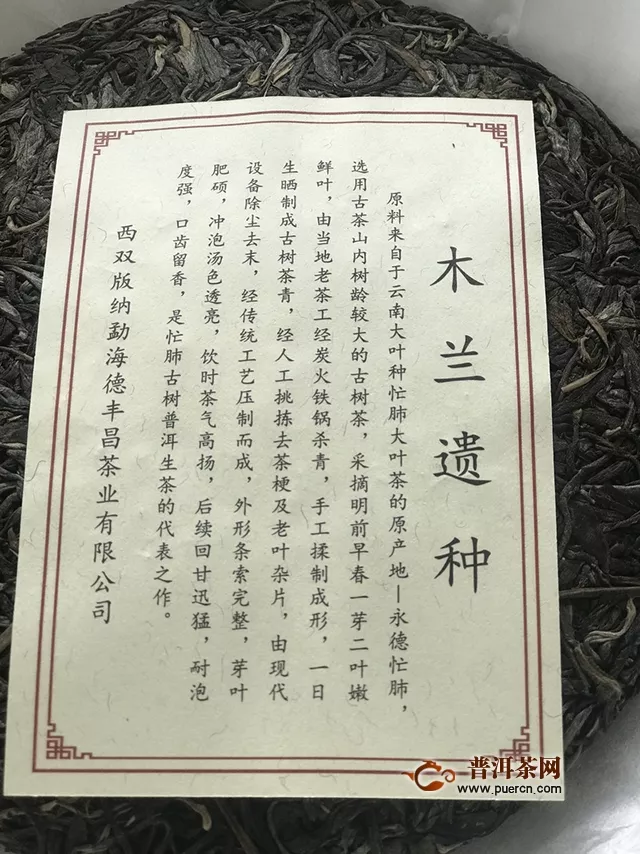 木兰遗种
原料来自于云南大叶种忙肺大叶茶的原产地—永德忙肺，
选用古茶山内树龄较大的古树茶，采摘明前早春一芽二叶嫩
鲜叶，由当地老茶工经炭火铁锅杀青，手工揉制成形，一日
生晒制成古树茶青，经人工挑拣去茶梗及老叶杂片，由现代
设备除尘去末，经传统工艺压制而成，外形条索完整，芽叶
肥硕，冲泡汤色透亮，饮时茶气高扬，后续回甘迅猛，耐泡
度强，口齿留香，是忙肺古树普洱生茶的代表之作。
西双版纳勐海德丰昌茶业有限公司
普洱茶网
www.puercn.com